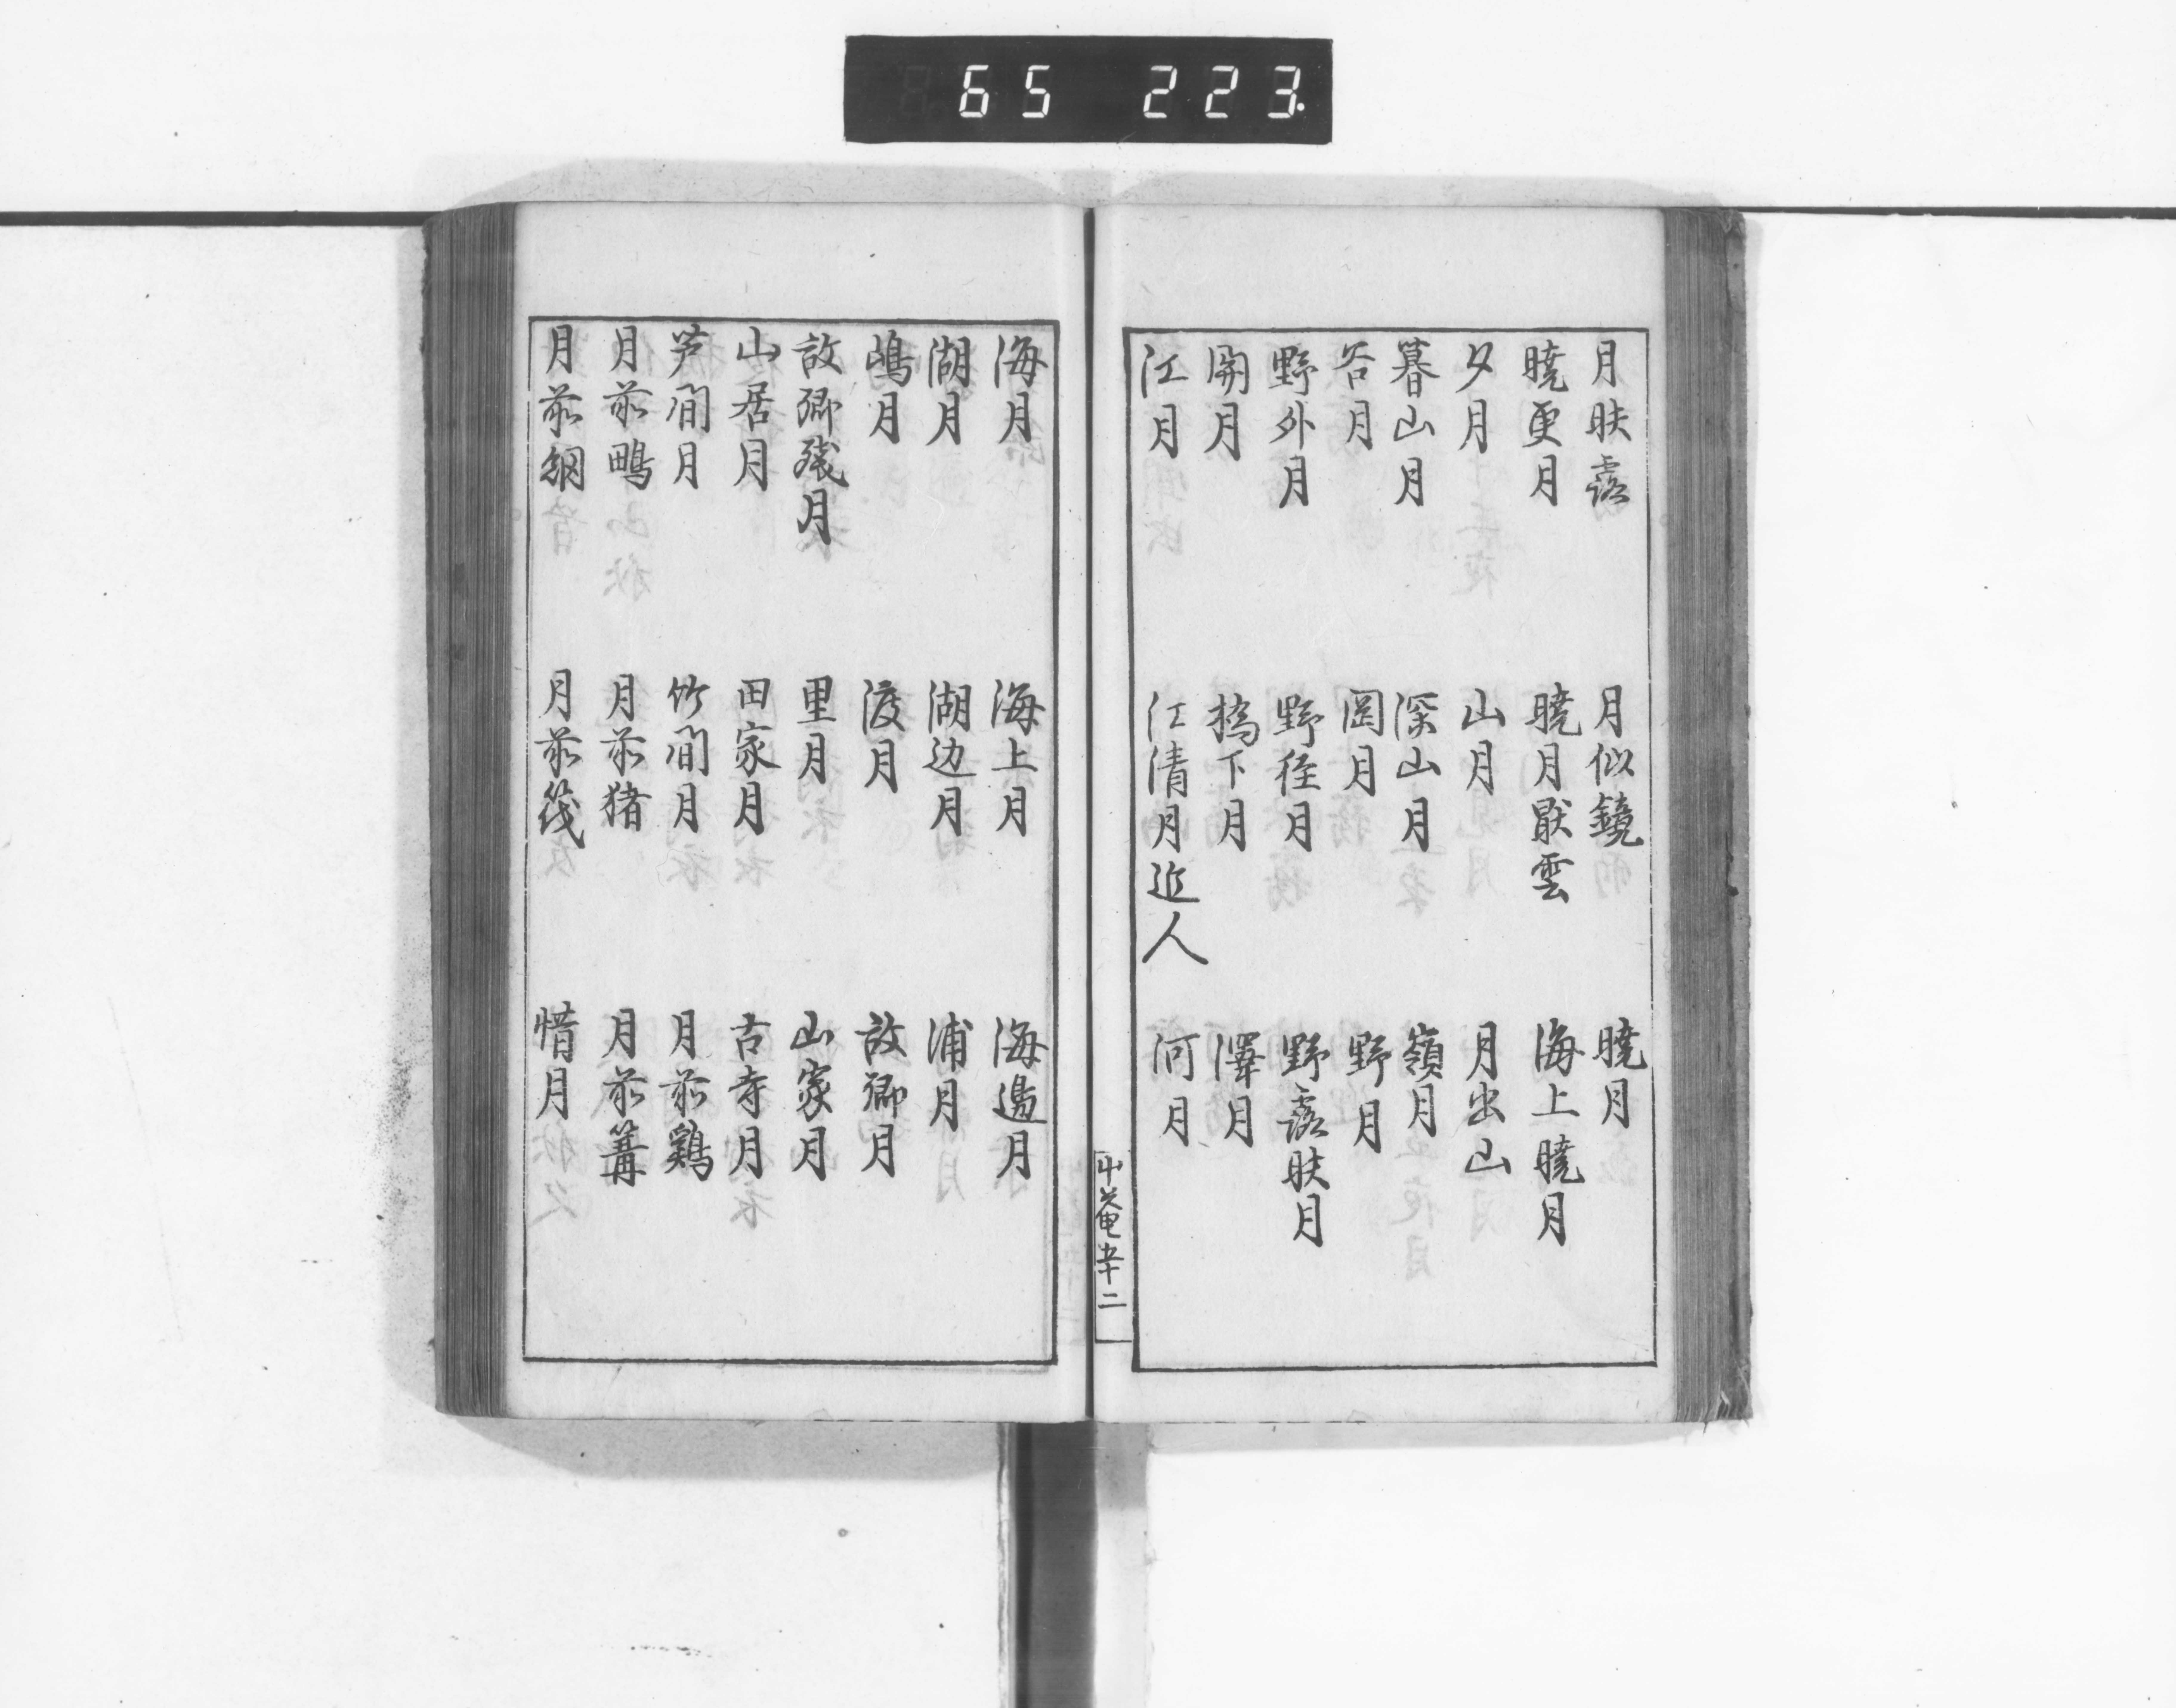 65 223.
月映露　月似鏡　暁月
暁更月　暁月厭雲　海上暁月
夕月　山月　月出山
暮山月　深山月　嶺月
谷月　岡月　野月
野外月　野径月　野露映月
関月　橋下月　澤月
江月　江清月近人　河月
五十二
海月　海上月　海邊月
湖月　湖辺月　浦月
嶋月　渡月　故郷月
故郷残月　里月　山家月
山居月　田家月　古寺月
笋間月　竹間月　月前鶏
月前鴫　月前猪　月前篝
月前網　月前筏　惜月